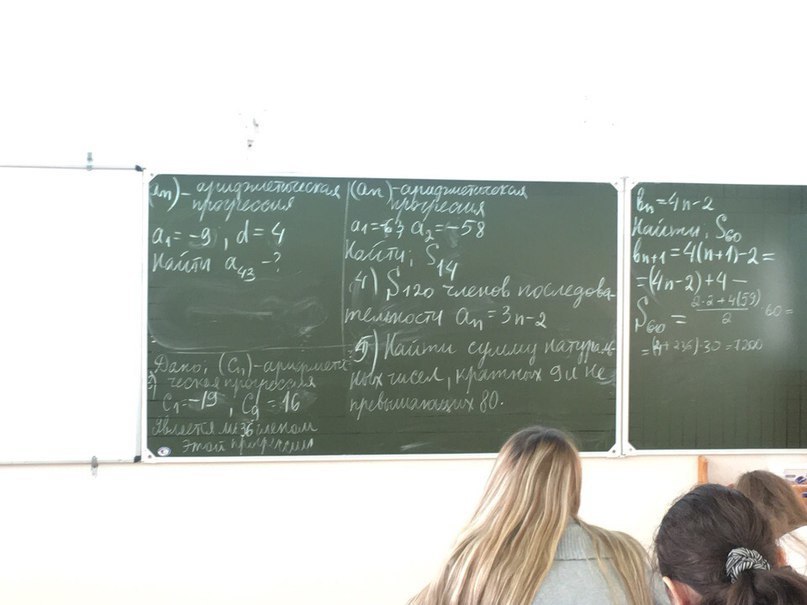 (an)-арифметическая
прогрессия
a₁=-9, d=4
Найти a₄₃-?
Дано: (Cn)-арифмети
ческая прогрессия
C₁=-19, C₉=16
Является ли 36 членом
этой прогрессии
(an)-арифметическая
прогрессия
a₁=-63 a₂=-58
Найти: S₁₄
4) S₁₂₀ членов последова
тельности an=3n-2
5) Найти сумму натураль
ных чисел, кратных 9 и не
превышающих 80.
bn=4n-2
Найти: S₆₀
bn+1=4(n+1)-2=
=(4n-2)+4
S₆₀ = (2·2+4(59))/2 · 60=
=(4+236)·30=7200